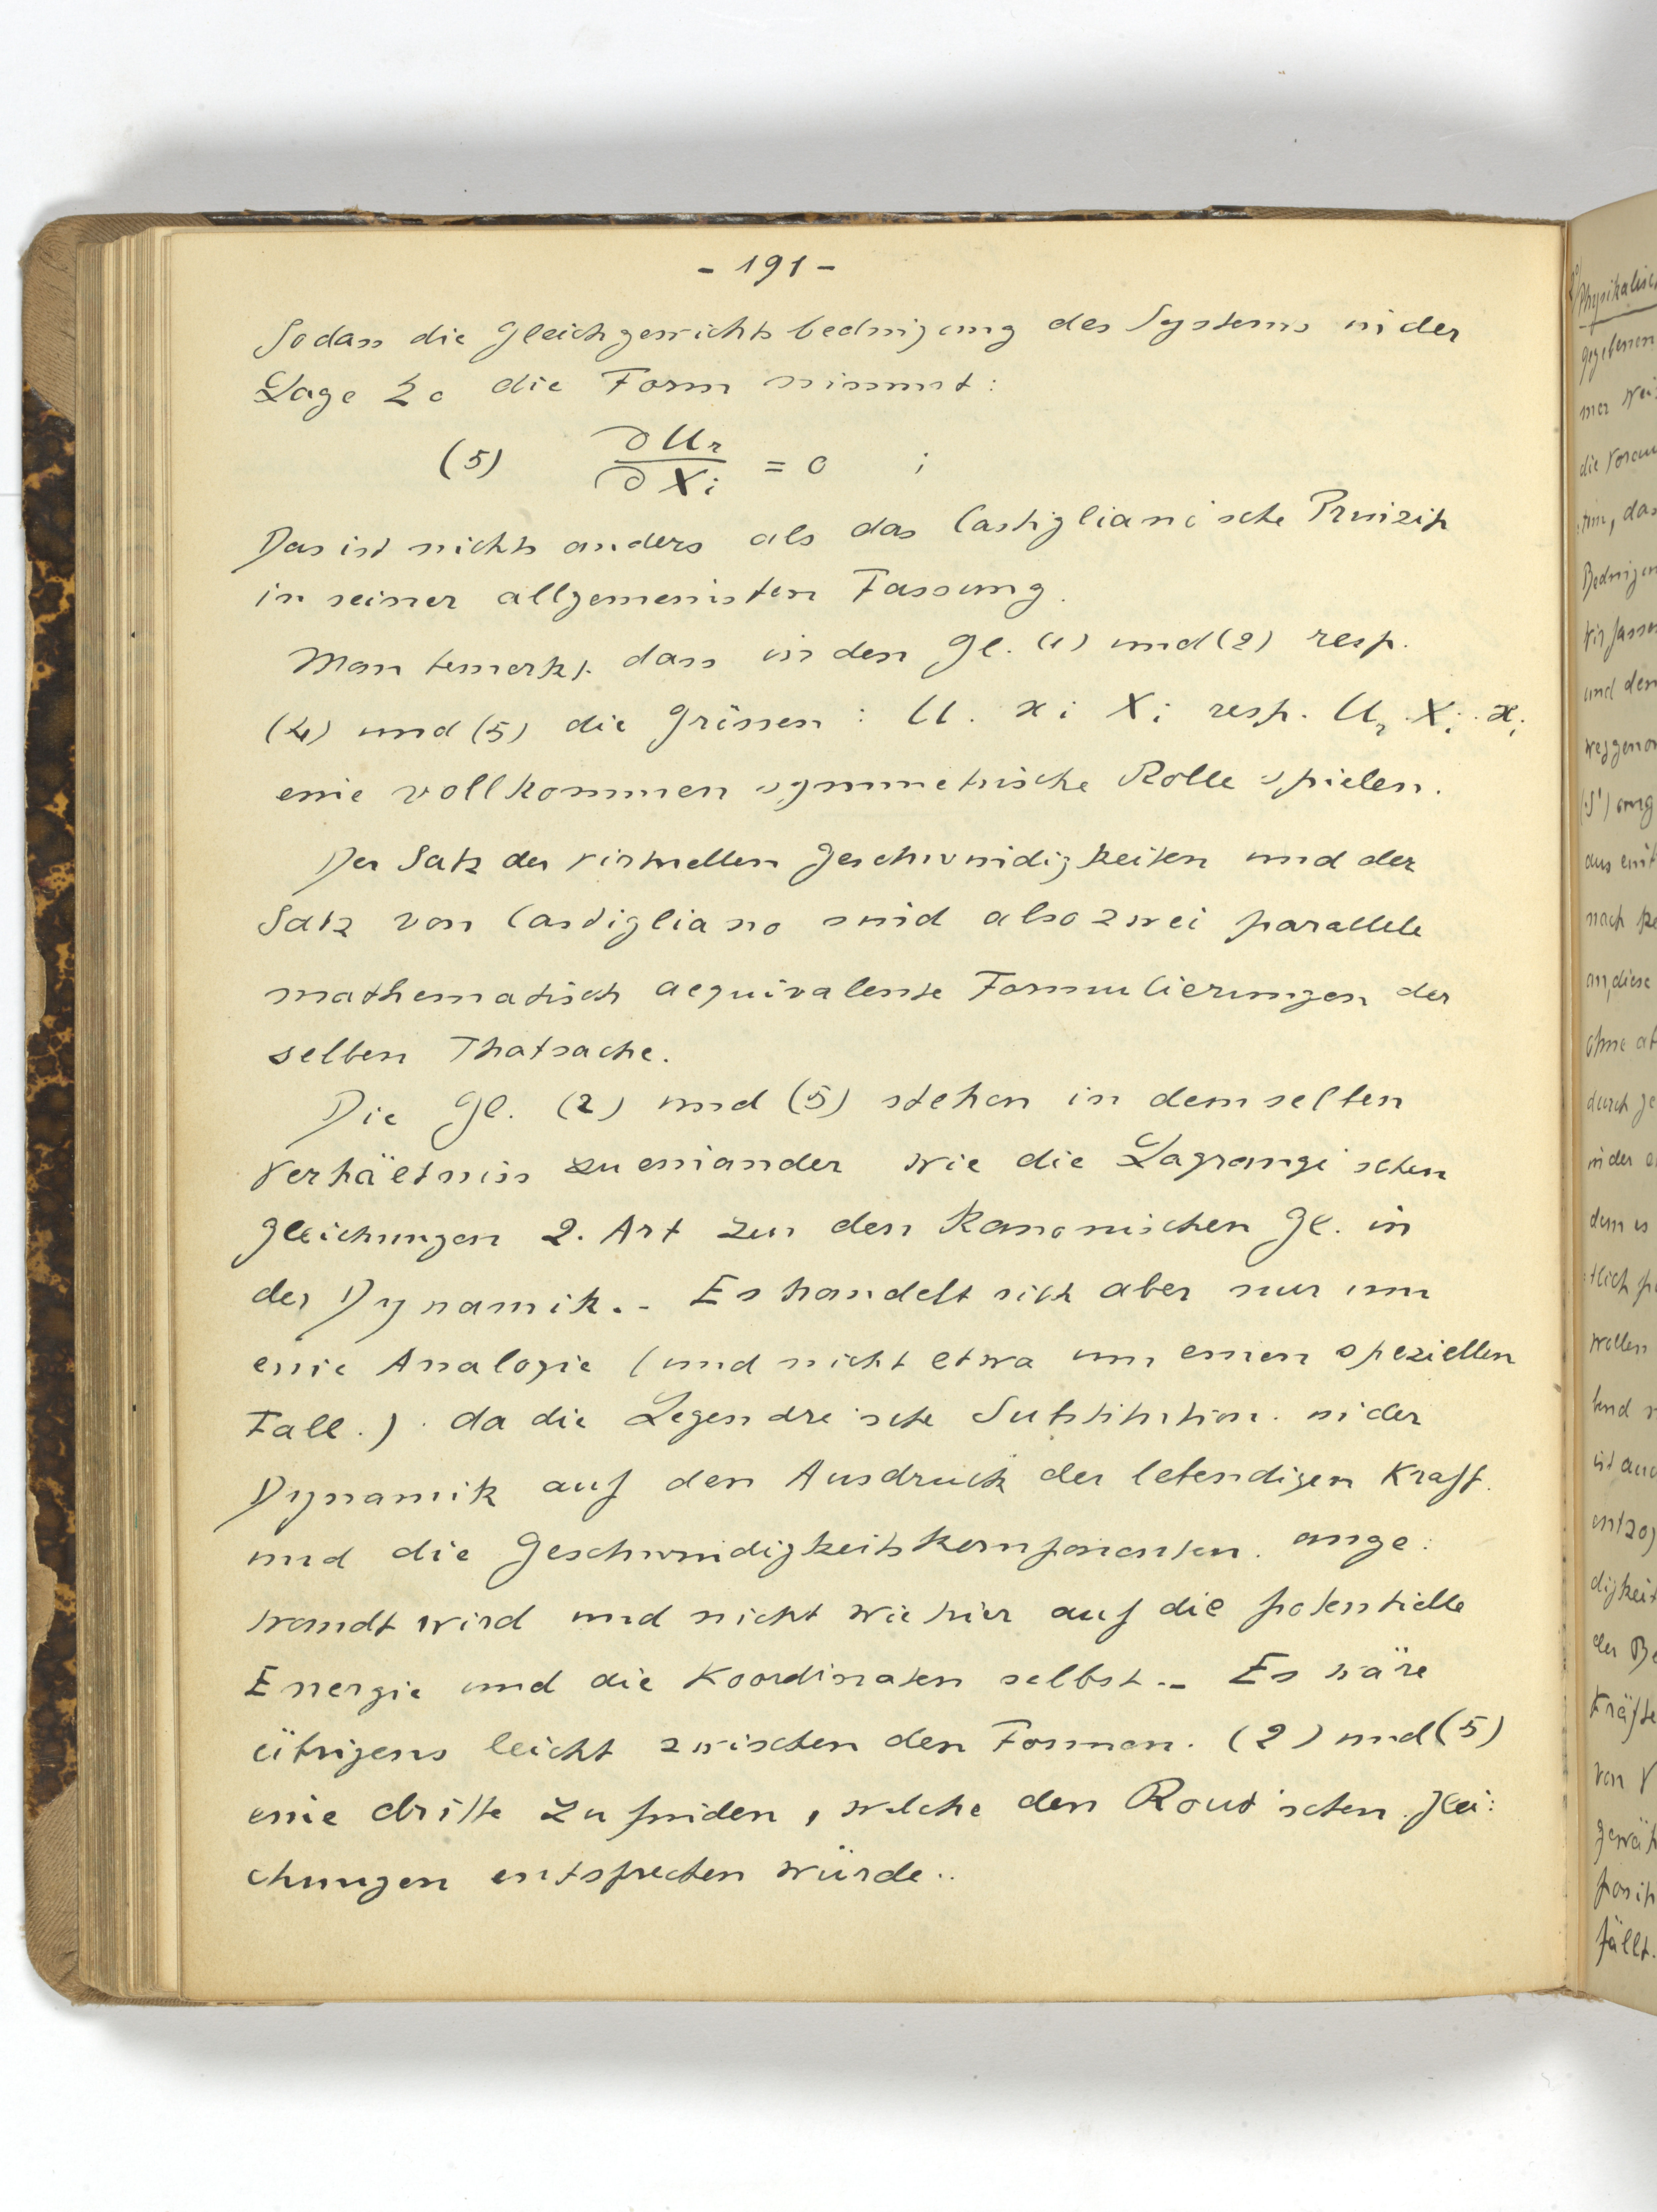 - 191 -
Sodass die Gleichgewichtsbedingung des Systems in der
Lage Σ0 die Form nimmt:
(5) ∂U₂/∂Xi = 0 ;
Das ist nichts anders als das Castigliano'sche Prinzip
in seiner allgemeinsten Fassung.
Man bemerkt dass in den Gl. (1) und (2) resp.
(4) und (5) die Grössen: U. xi Xi resp. U₂ . Xi . xi
eine vollkommen symmetrische Rolle spielen.
Der Satz der virtuellen Geschwindigkeiten und der
Satz von Castigliano sind also zwei parallele
mathematisch aequivalente Formulierungen der
selben Thatsache.
Die Gl. (2) und (5) stehen in demselben
Verhältniss zu einander wie die Lagrange'schen
Gleichungen 2. Art zu den Kanonischen Gl. in
der Dynamik. - Es handelt sich aber nur um
eine Analogie (und nicht etwa um einen speziellen
Fall.) . da die Legendre'sche Substitution. in der
Dynamik auf den Ausdruck der lebendigen Kraft.
und die Geschwindigkeitskomponenten. ange:
wandt wird und nicht wie hier auf die potentielle
Energie und die Koordinaten selbst. - Es wäre
übrigens leicht zwischen den Formen. (2) und (5)
eine dritte zu finden, welche den Rout'schen Glei:
chungen entsprechen würde..
Physikalisch
gegebenen
und den
an, diese
durch
in der
wollen
Kräfte
von V
fällt.